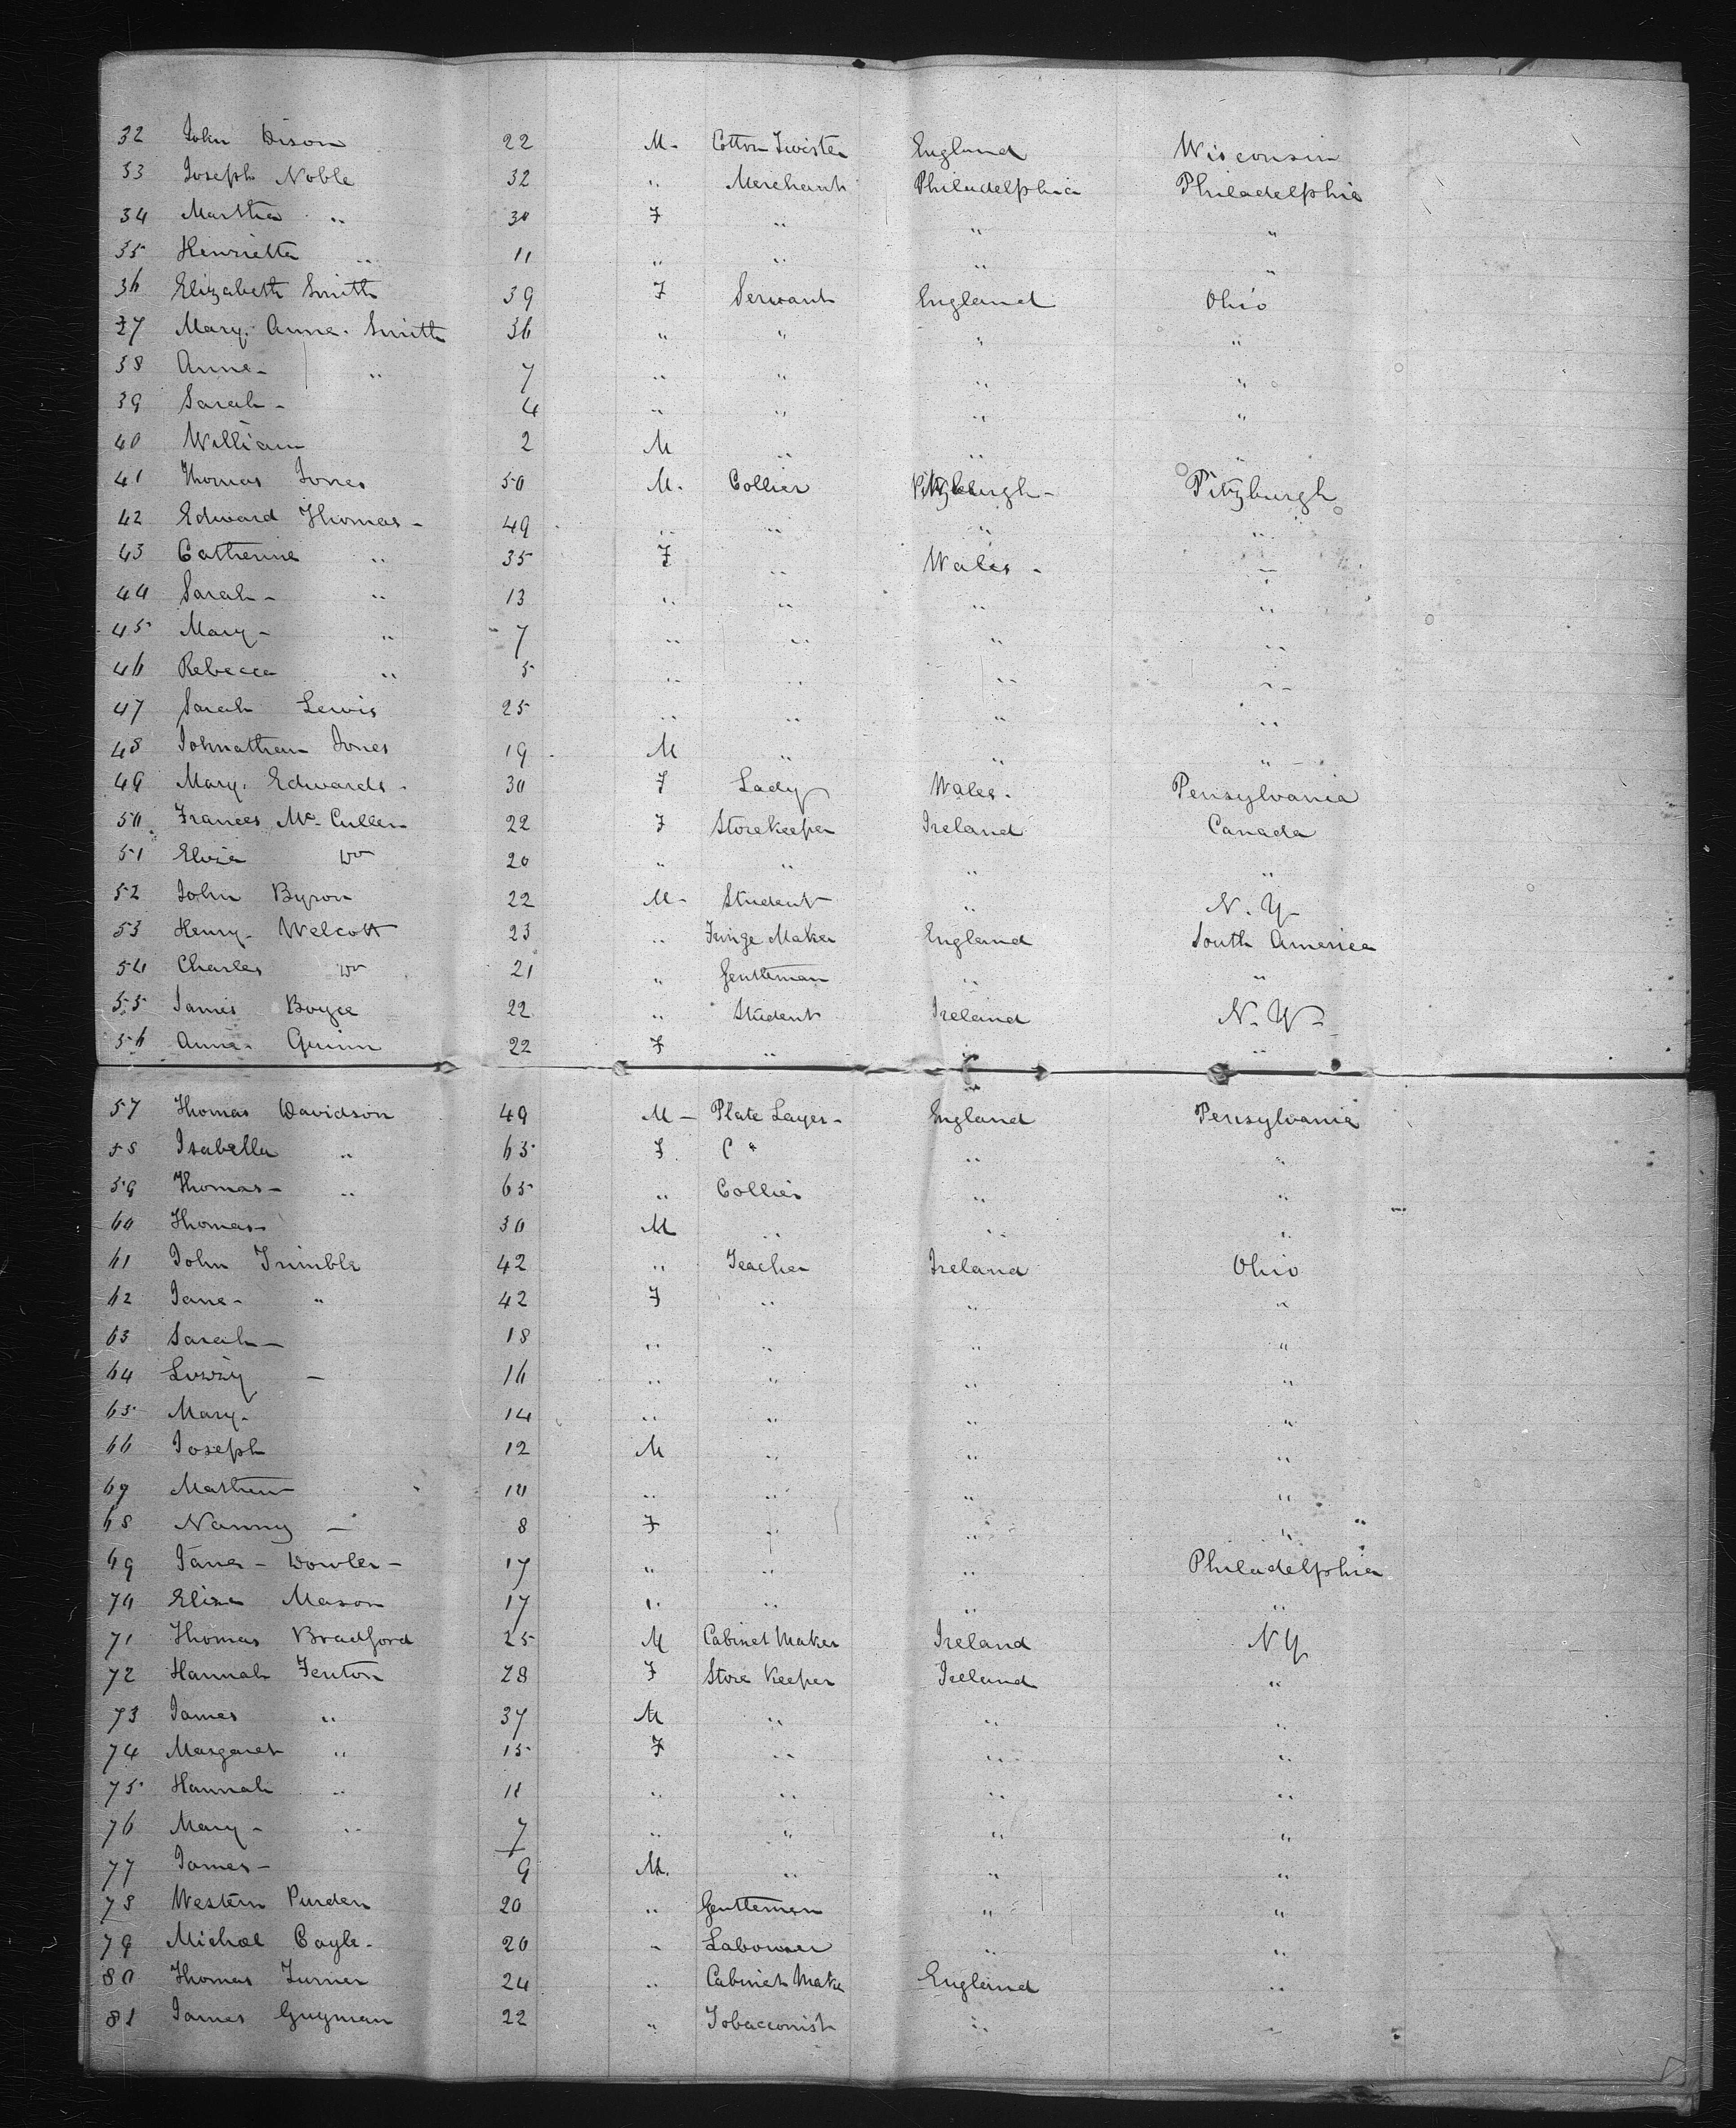 32 John Dison 22 M- Cotton Twister England Wisconsin
33 Joseph Noble 32 " Merchant Philadelphia Philadelphia
34 Martha " 30 F " " "
35 Henrietta " 11 " " " "
36 Elizabeth Smith 39 F Servant England Ohio
37 Mary. Anne. Smith 36 " " " "
38 Anne- " 7 " " " "
39 Sarah- 4 " " " "
40 William 2 M " " "
41 Thomas Jones 50 M. Collier Pitzburgh
42 Edward Thomas- 49 " " " "
43 Catherine " 35 F " Wales- "
44 Sarah- " 13 " " " "
45 Mary- " 7 " " " "
46 Rebecca " 5 " " " "
47 Sarah Lewis 25 " " " "
48 Johnathan Jones 19 M " " "
49 Mary. Edwards- 30 F Lady Wales- Pensylvania
50 Frances Mc Cullen 22 F Storekeeper Ireland Canada
51 Eliza Do 20 " " " "
52 John Byron 22 M- Student " N. Y-
53 Henry- Welcott 23 " Maker England South America
54 Charles Do 21 " Gentleman " "
55 James Boyce 22 " Student Ireland N. Y-
56 Anne- Quinn 22 F " " "
57 Thomas Davidson 49 M- Plate Layer- England Pensylvania
58 Isabella " 65 F C " " "
59 Thomas- " 65 " Collier " "
60 Thomas- 30 M " " "
61 John Trimble 42 " Teacher Ireland Ohio
62 Jane- " 42 F " " "
63 Sarah- 18 " " " "
64 - 16 " " " "
65 Mary- 14 " " " "
66 Joseph 12 M " " "
67 Mathew 10 " " " "
68 Nanny - 8 F " " "
69 Jane- Dowler- 17 " " " Philadelphia
70 Eliza Mason 17 " " " "
71 Thomas Bradford 25 M Cabinet Maker Ireland N Y
72 Hannah Fenton 28 F Store Keeper Ireland "
73 James " 37 M " " "
74 Margaret " 15 F " " "
75 Hannah " 11 " " " "
76 Mary- " 7 " " " "
77 James- 9 M. " " "
78 Western Purden 20 " Gentleman " "
79 Michael Cayle- 20 " Labourer " "
80 Thomas Turner 24 " Cabinet Make England "
81 James Guyman 22 " Tobacconist " "